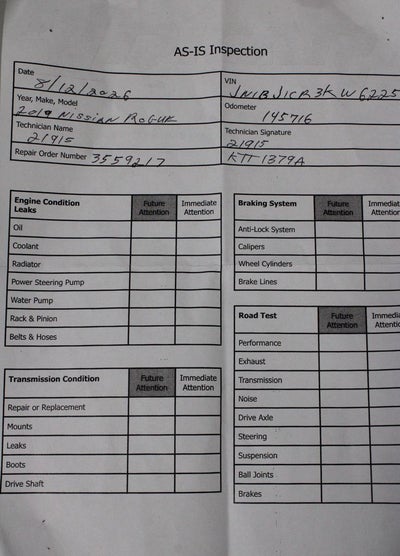 AS-IS Inspection
Date 8/12/2026
VIN JN1BJ1CR3KW6225
Year, Make, Model 2019 NISSIAN ROGUE
Odometer 145716
Technician Name 21915
Technician Signature 21915
Repair Order Number 3559217
KTT1379A
Engine Condition Leaks Future Attention Immediate Attention
Oil
Coolant
Radiator
Power Steering Pump
Water Pump
Rack & Pinion
Belts & Hoses
Transmission Condition Future Attention Immediate Attention
Repair or Replacement
Mounts
Leaks
Boots
Drive Shaft
Braking System Future Attention Immediat Attention
Anti-Lock System
Calipers
Wheel Cylinders
Brake Lines
Road Test Future Attention Immedia Attentic
Performance
Exhaust
Transmission
Noise
Drive Axle
Steering
Suspension
Ball Joints
Brakes